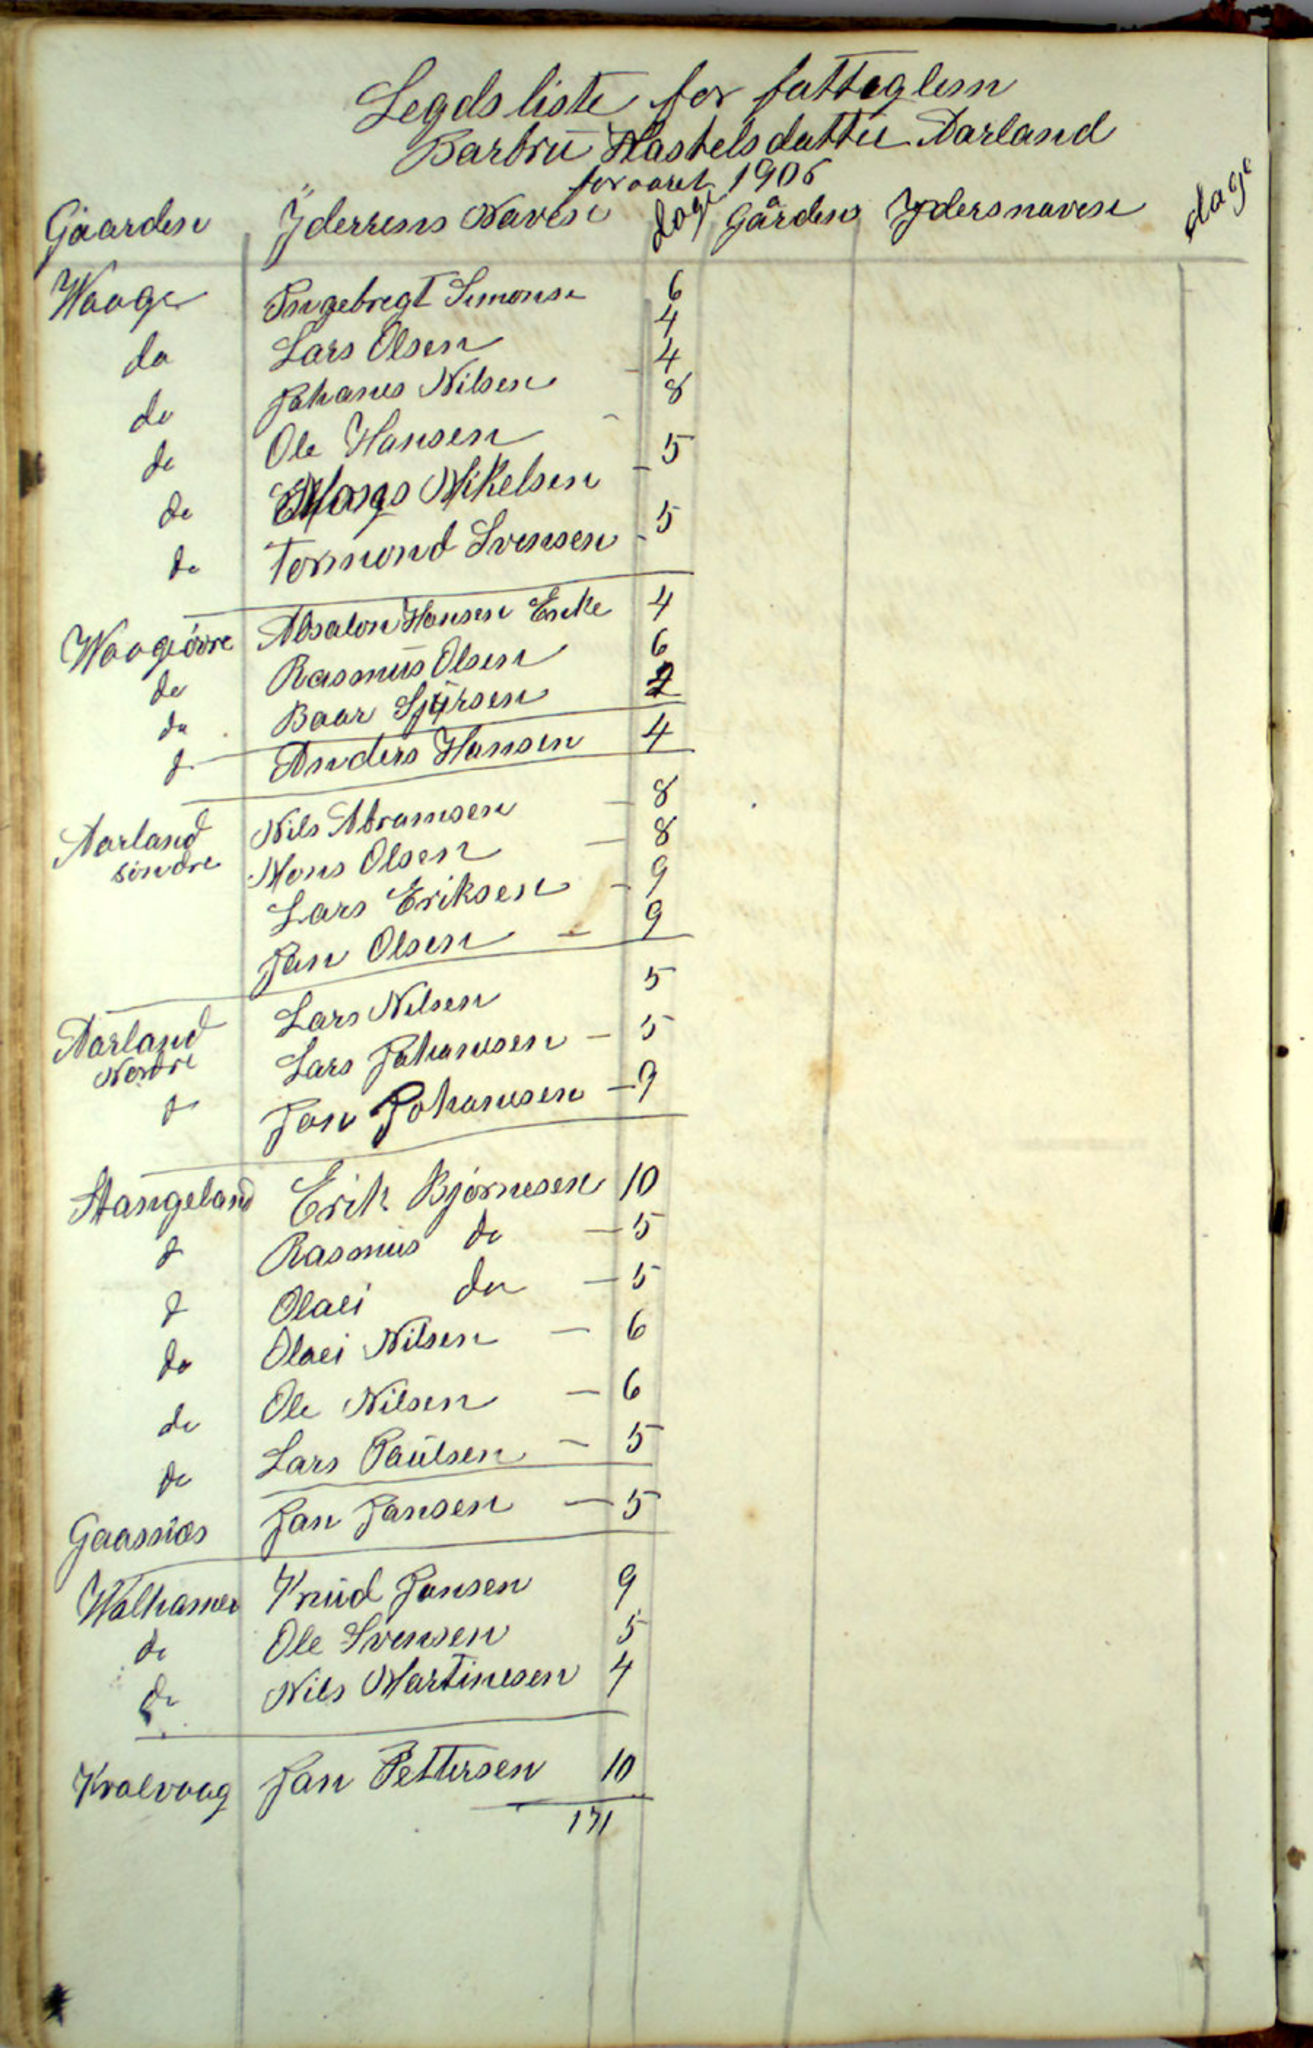 Legdsliste for fatteglem
Barbru Hastelsdatter Aarland
for aaret 1906
Gaarden Yderrens Navn dage Gården Ydersnaven dage
Waage Ingebregt Simonse 6
do Lars Olsen 4
do Johanes Nilsen - 4
do Ole Hansen - 8
do Mons Mikelsen - 5
do Tormond Svensen - 5
Waage övre Absalon Hansen Enke 4
do Rasmus Olsen 6
do Baar Sjursen 2
d Anders Hansen 4
Aarland Nils Abramsen - 8
söndre Mons Olsen - 8
Lars Eriksen - 9
Jan Olsen - 9
Aarland Lars Nilsen 5
Nordre Lars Johanesen - 5
d Jon Johanesen - 9
Stangeland Erik Bjørnesen 10
d Rasmus do - 5
d Olaei do - 5
do Olaei Nilsen - 6
do Ole Nilsen - 6
do Lars Paulsen - 5
Gaasnæs Jan Jansen - 5
Walhamer Knud Jansen 9
do Ole Svensen 5
do Nils Martinesen 4
Kvalvaag Jan Pettersen 10
171